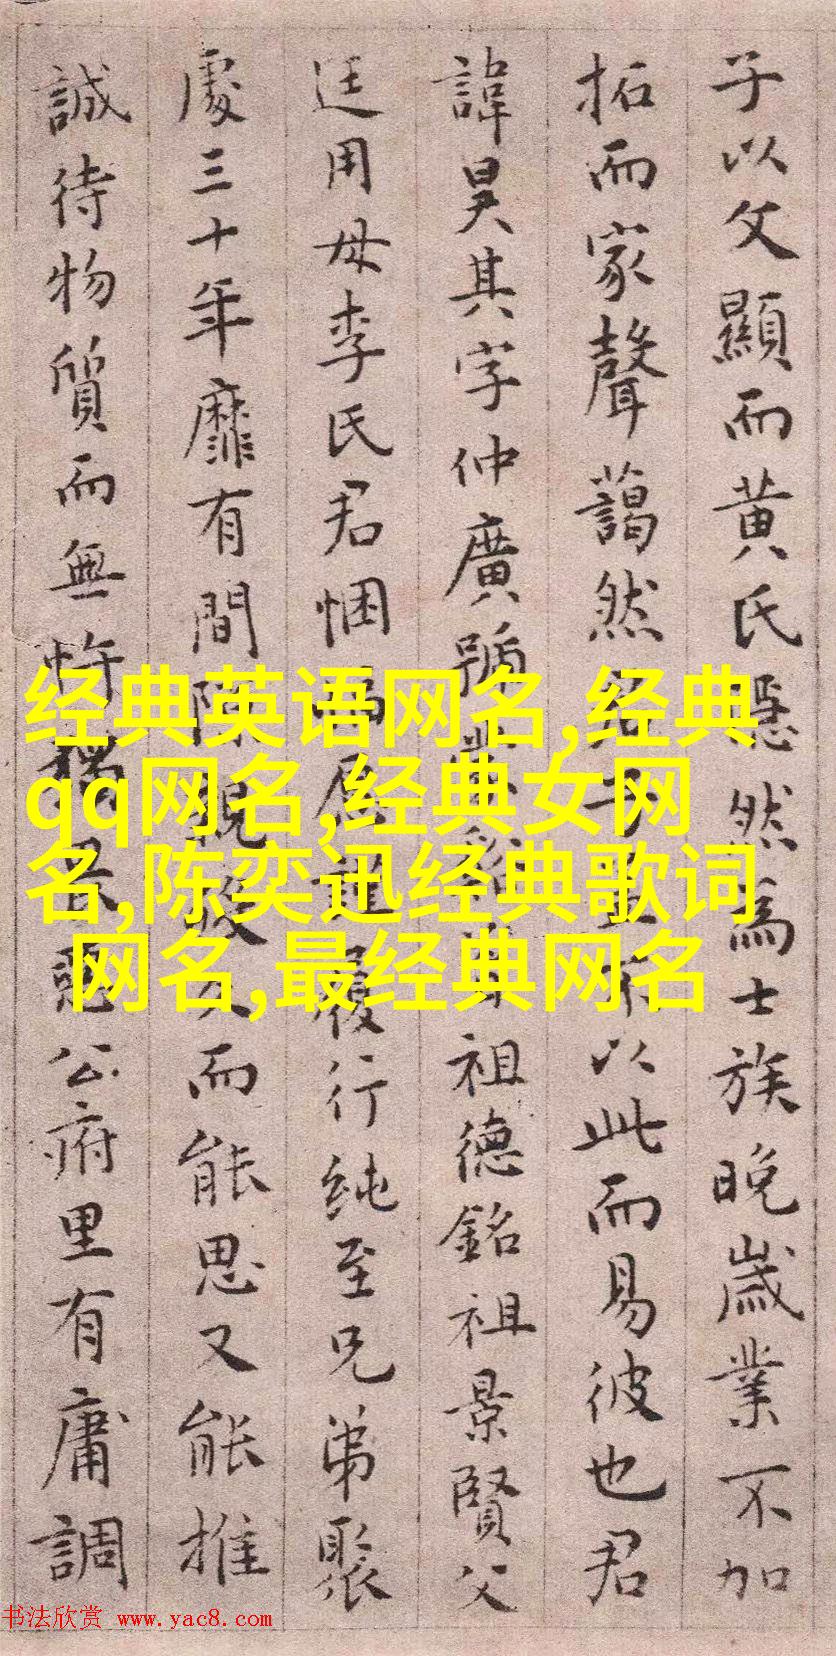 子以父顯而黃氏隱然為士族晚歲業不加
拓而家聲藹然以此而易彼也君
諱昊其字仲廣號祖德銘祖景賢父
廷用母李氏君悃履行純至兄弟聚
處三十年靡有間而能思又能推
誠待物質而無忤公府里有庸調
经典英语网名,经典
qq网名,经典女网
名,陈奕迅经典歌词
网名,最经典网名
书法欣赏 www.yac8.com